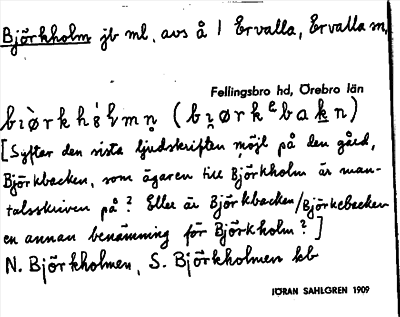 Björkholm jb ml, avs å 1 Ervalla, Ervalla sn,
Fellingsbro hd, Örebro län
bìørkhólmn̥ (bi̯ørkebakn)
[Syftar den sista ljudskriften möjl på den gård,
Björkbacken, som ägaren till Björkholm är man-
talsskriven på? Eller är Björkbacken/Björkebacken
en annan benämning för Björkholm?]
N. Björkholmen, S. Björkholmen kb
JÖRAN SAHLGREN 1909